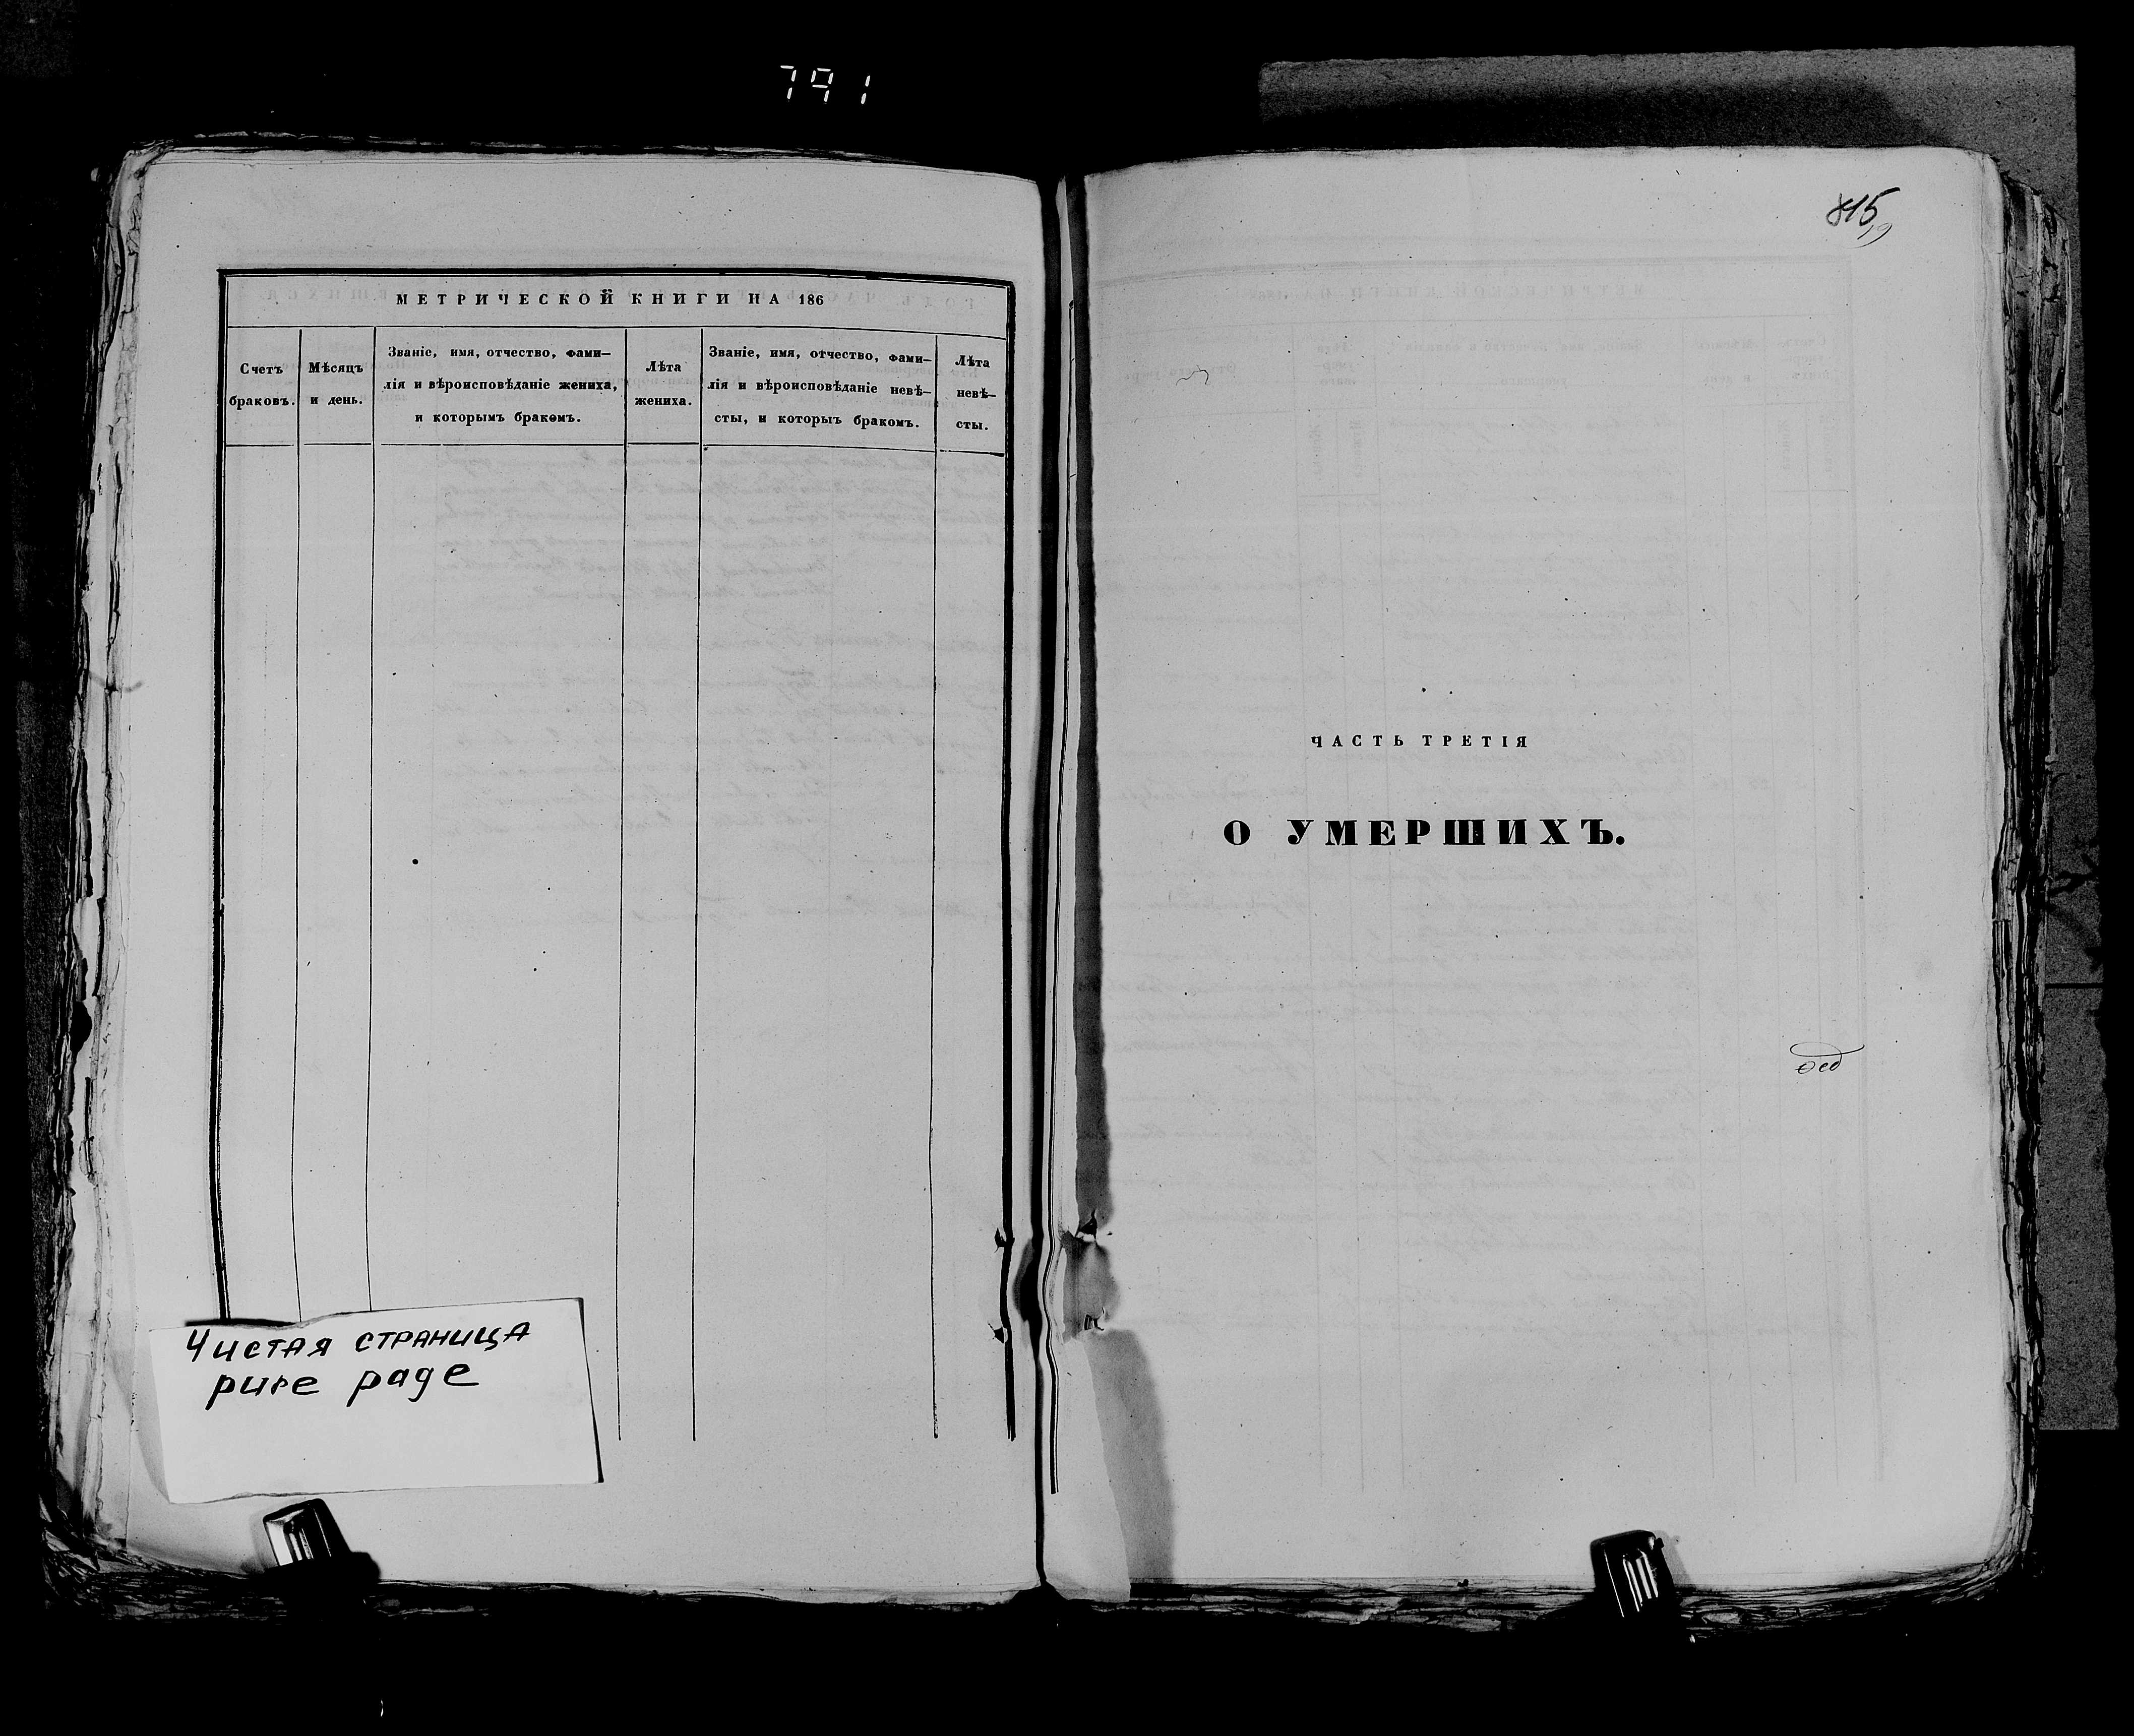 791
МЕТРИЧЕСКОЙ КНИГИ НА 186
Счетъ
браковъ.
Мѣсяцъ
и день.
Званіе, имя, отчество, фами-
лія и вѣроисповѣданіе жениха,
и которымъ бракомъ.
Лѣта
жениха.
Званіе, имя, отчество, фами-
лія и вѣроисповѣданіе невѣ-
сты, и которыъ бракомъ.
Лѣта
невѣ-
сты.
Чистая страница
pure page
815
ЧАСТЬ ТРЕТІЯ
О УМЕРШИХЪ.